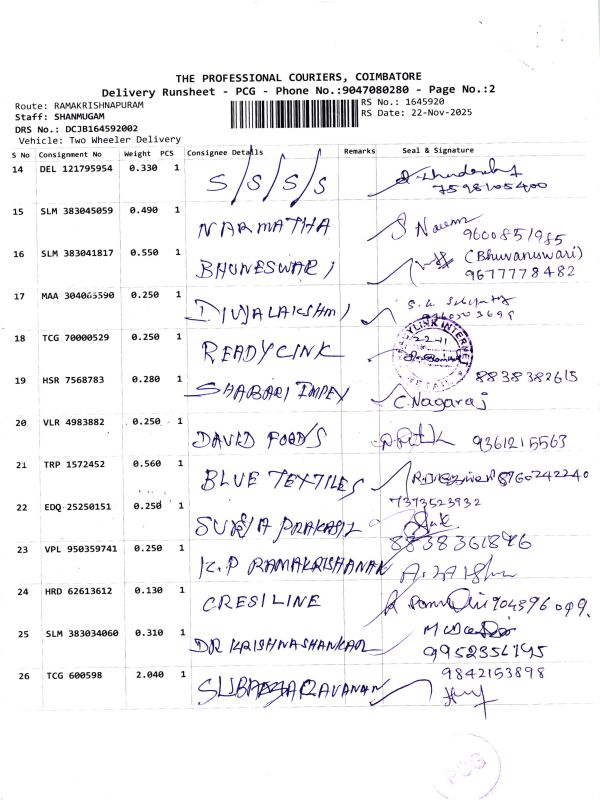 THE PROFESSIONAL COURIERS, COIMBATORE
Delivery Runsheet - PCG - Phone No.:9047080280 - Page No.:2
Route: RAMAKRISHNAPURAM
Staff: SHANMUGAM
DRS No.: DCJB164592002
Vehicle: Two Wheeler Delivery
RS No.: 1645920
RS Date: 22-Nov-2025
S No Consignment No Weight PCS Consignee Details Remarks Seal & Signature
14 DEL 121795954 0.330 1 S/S/S/S
7598105400
15 SLM 383045059 0.490 1 NARMATHA
9600851985
16 SLM 383041817 0.550 1 BHUNESWARI (Bhuvaneswari)
9677778482
17 MAA 304063590 0.250 1 DIVYALAKSHMI
18 TCG 70000529 0.250 1 READYLINK
READYLINK INTERNET
22-11
19 HSR 7568783 0.280 1 SHABARI IMPEX 8838382615
C. Nagaraj
20 VLR 4983882 0.250 1 DAVID FOODS 9361215563
21 TRP 1572452 0.560 1 BLUE TEXTILES 8760242240
7373523932
22 EDQ 25250151 0.250 1 SURYA PRAKASH
8838361896
23 VPL 950359741 0.250 1 K.P RAMAKRISHANAN
24 HRD 62613612 0.130 1 CRESILINE
25 SLM 383034060 0.310 1 DR KRISHNASHANKAR
9952356195
26 TCG 600598 2.040 1 SUBA SARAVANAN
9842153898
PCG